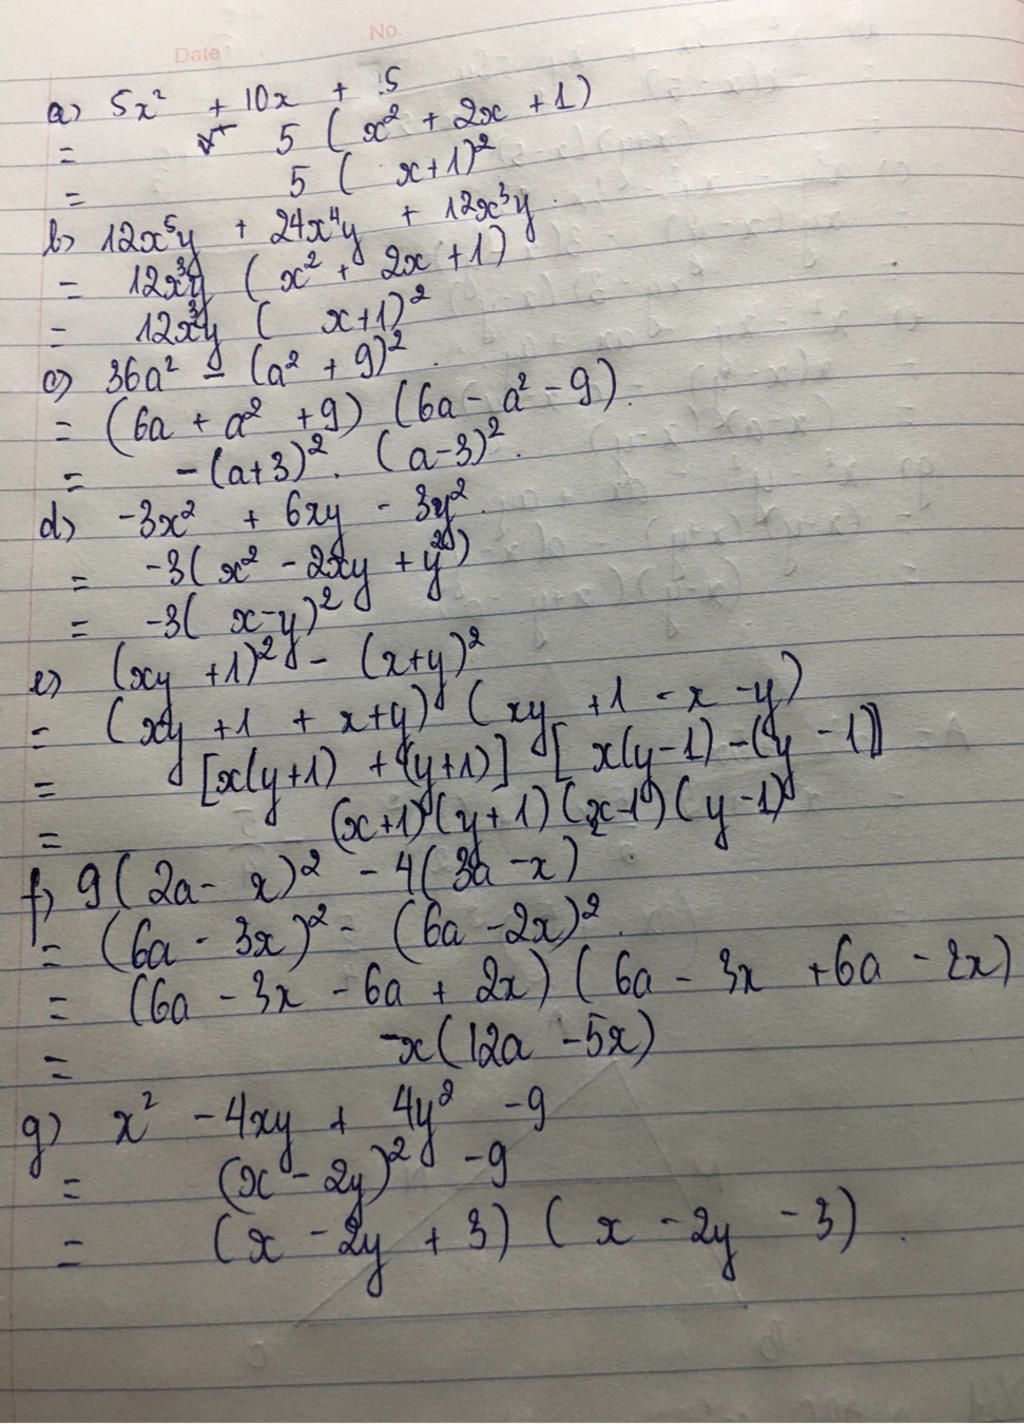 Date
No.
a) 5x² + 10x + 5
= 5 ( x² + 2x + 1)
= 5 ( x+1)²
b) 12x⁵y + 24x⁴y + 12x³y.
= 12x³y ( x² + 2x + 1)
= 12x³y ( x+1)²
c) 36a² - (a² + 9)².
= (6a + a² + 9) (6a - a² - 9).
= -(a+3)². (a-3)².
d) -3x² + 6xy - 3y².
= -3( x² - 2xy + y²)
= -3( x-y)²
e) (xy + 1)² - (x+y)²
= (xy + 1 + x+y) (xy + 1 - x - y)
= [x(y+1) + (y+1)] [x(y-1) - (y - 1)]
= (x+1) (y+1) (x-1) (y-1)
f) 9( 2a - x)² - 4( 3a - x)².
= (6a - 3x)² - (6a - 2x)².
= (6a - 3x - 6a + 2x) ( 6a - 3x + 6a - 2x)
= -x(12a - 5x)
g) x² - 4xy + 4y² - 9
= (x - 2y)² - 9
= (x - 2y + 3) ( x - 2y - 3).